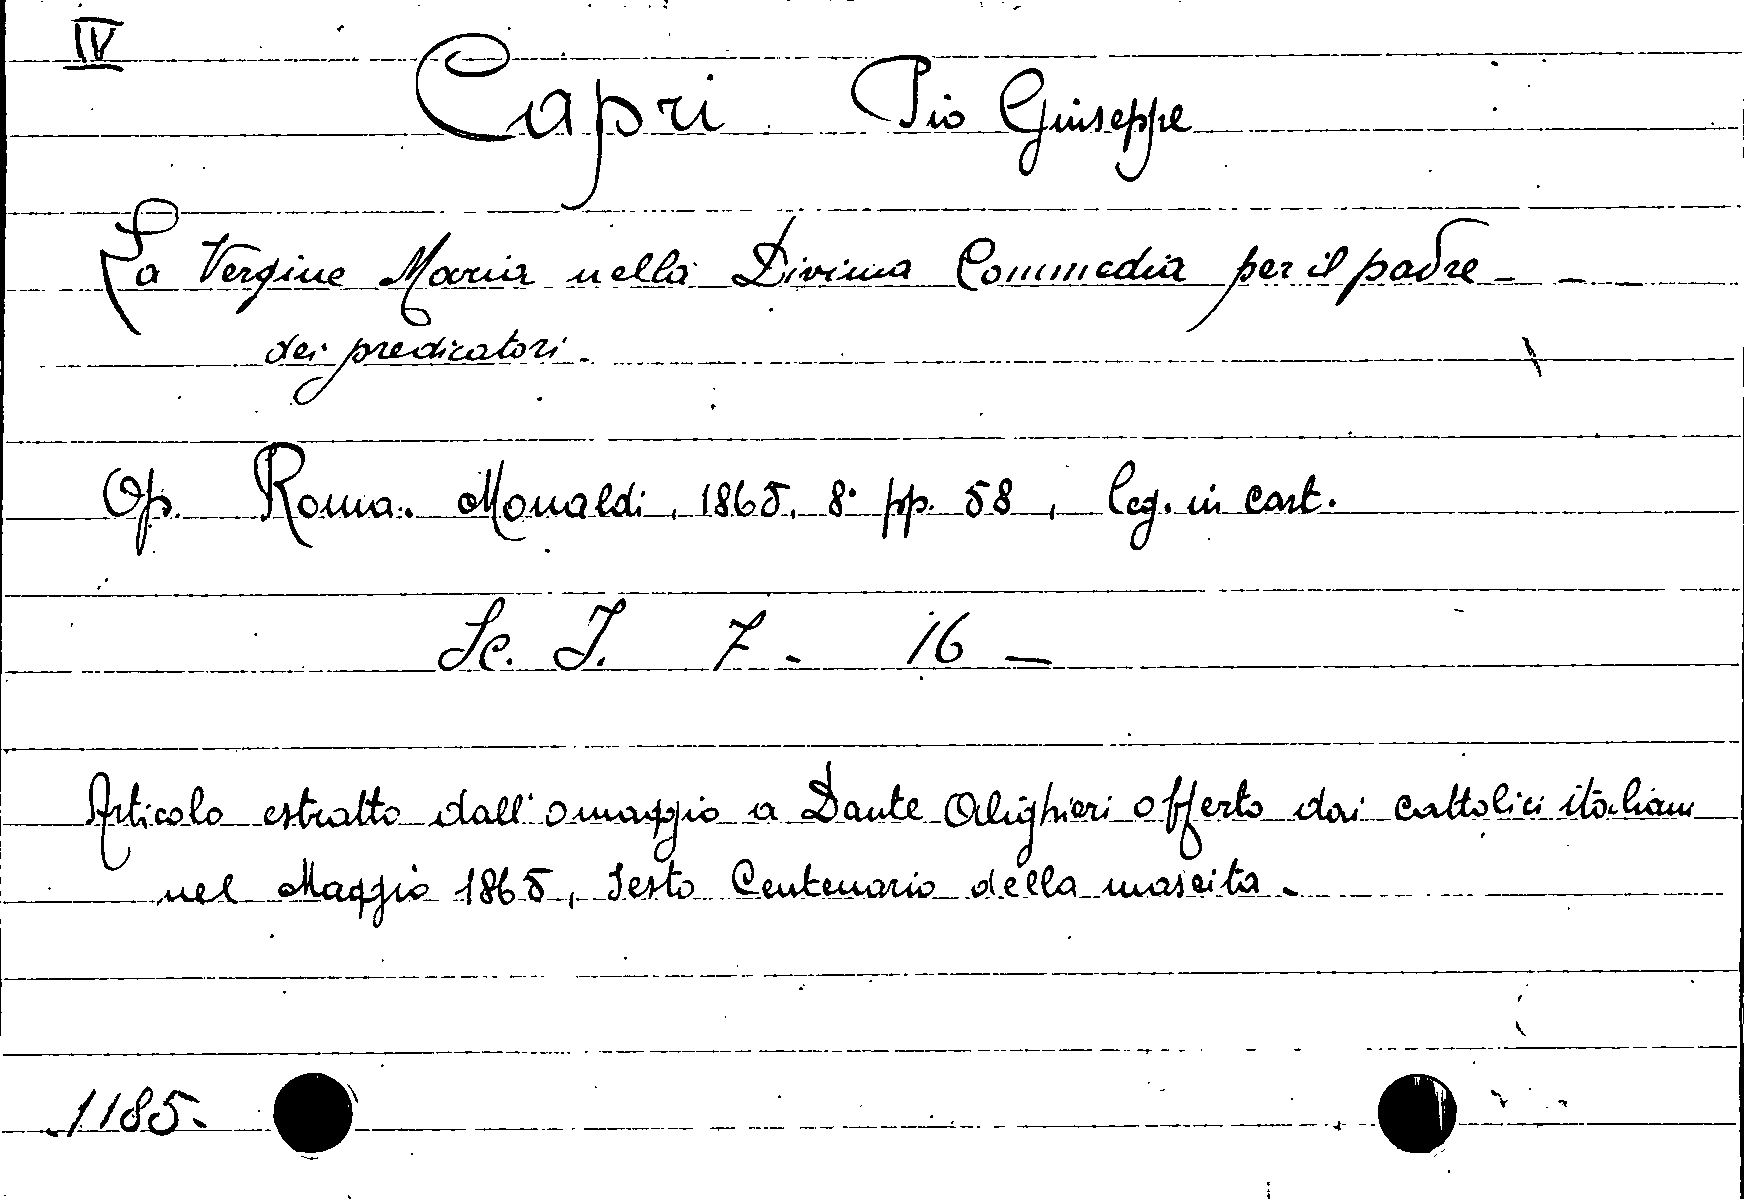 IV
Capri Pio Giuseppe
La Vergine Maria nella Divina Commedia per il padre - -
dei predicatori.
Op. Roma. Monaldi, 1865. 8° pp. 58, leg. in cart.
Sc. I. 7 - 16 -
Articolo estratto dall'omaggio a Dante Alighieri offerto dai cattolici italiani
nel Maggio 1865, Sesto Centenario della nascita.
1185.